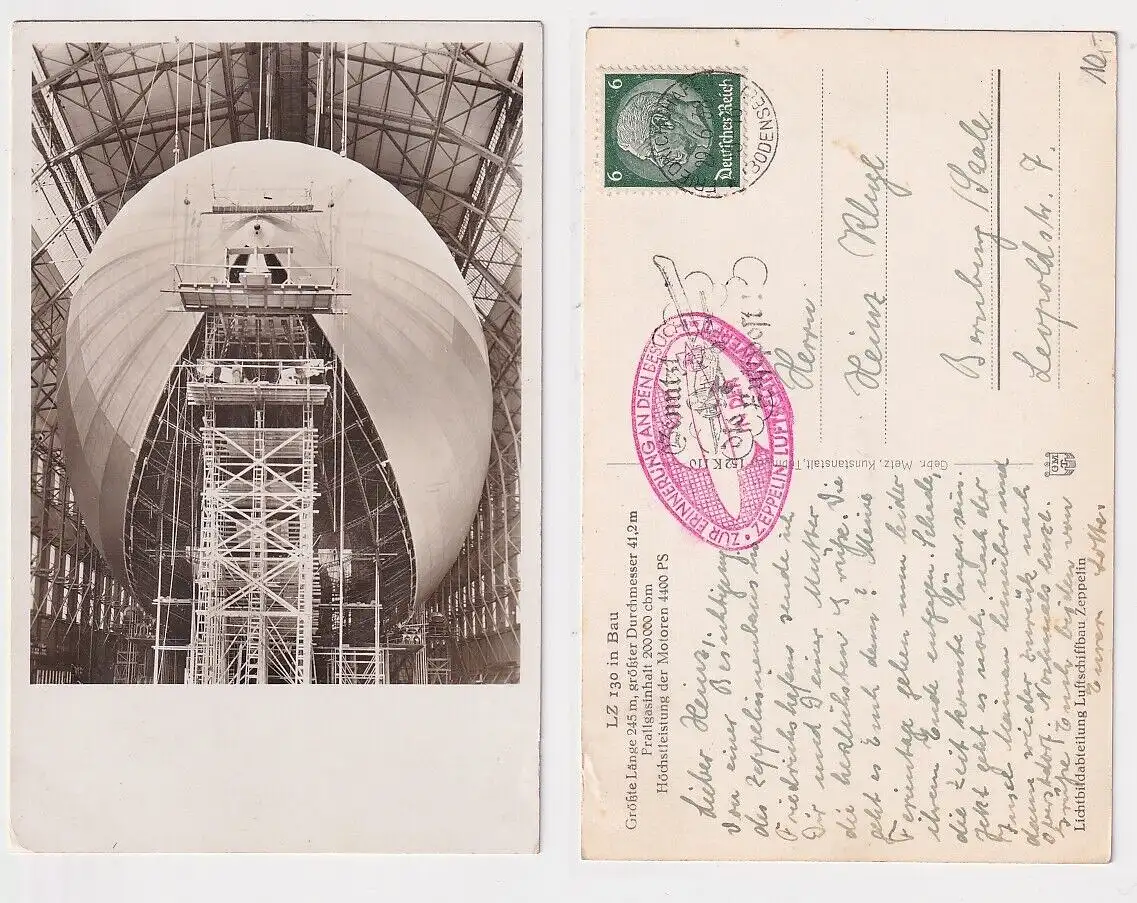 LZ 130 in Bau
Größte Länge 245 m, größter Durchmesser 41,2 m
Prallgasinhalt 200 000 cbm
Höchstleistung der Motoren 4400 PS
Lieber Heinz,
Von einer Besichtigung
des Zeppelinneubaus in
Friedrichshafen sende ich
Dir und Deiner Mutter
die herzlichsten Grüße. Wie
geht es Euch denn? Meine
Ferientage gehen nun leider
ihrem Ende entgegen. Schade,
die Zeit könnte länger sein.
Jetzt geht es noch nach der
Insel hinüber und
dann wieder zurück nach
Oberstdorf. Nochmals herzl.
Grüße Euch beiden von
Eurem
Lichtbildabteilung Luftschiffbau Zeppelin
Gebr. Metz, Kunstanstalt,
152 K 110
GM
6 Deutsches Reich 6
(BODENSEE)
Benutzt
ZUR ERINNERUNG AN DEN BESUCH
ZEPPELIN LUFT
Herrn
Heinz Klugl
Bernburg / Saale
Leopoldstr. 7.
10,-